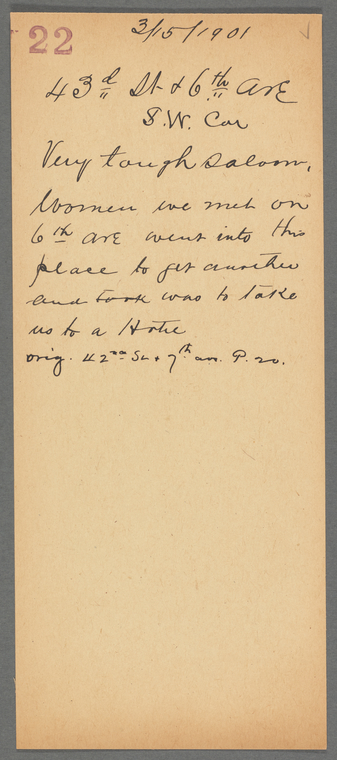 22
3/15/1901
43d St & 6th Ave
S.W. Cor
Very tough saloon.
Women we met on
6th Ave went into this
place to get another
and was to take
us to a Hotel
orig. 42nd St & 7th av. P. 20.